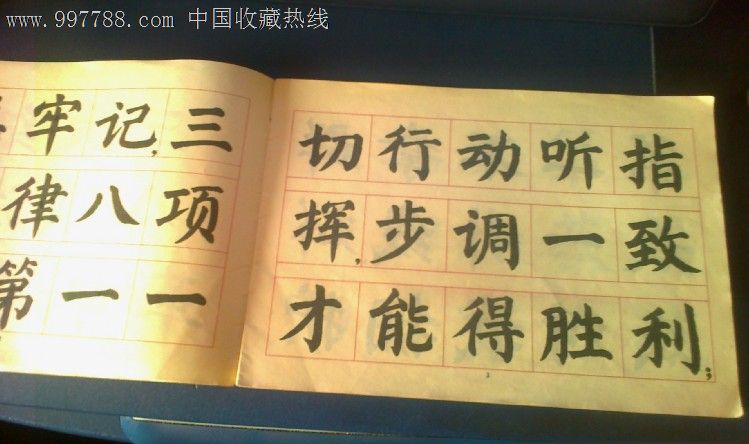 www.997788.com 中国收藏热线
牢记,三
律八项
第一一
切行动听指
挥,步调一致
才能得胜利;